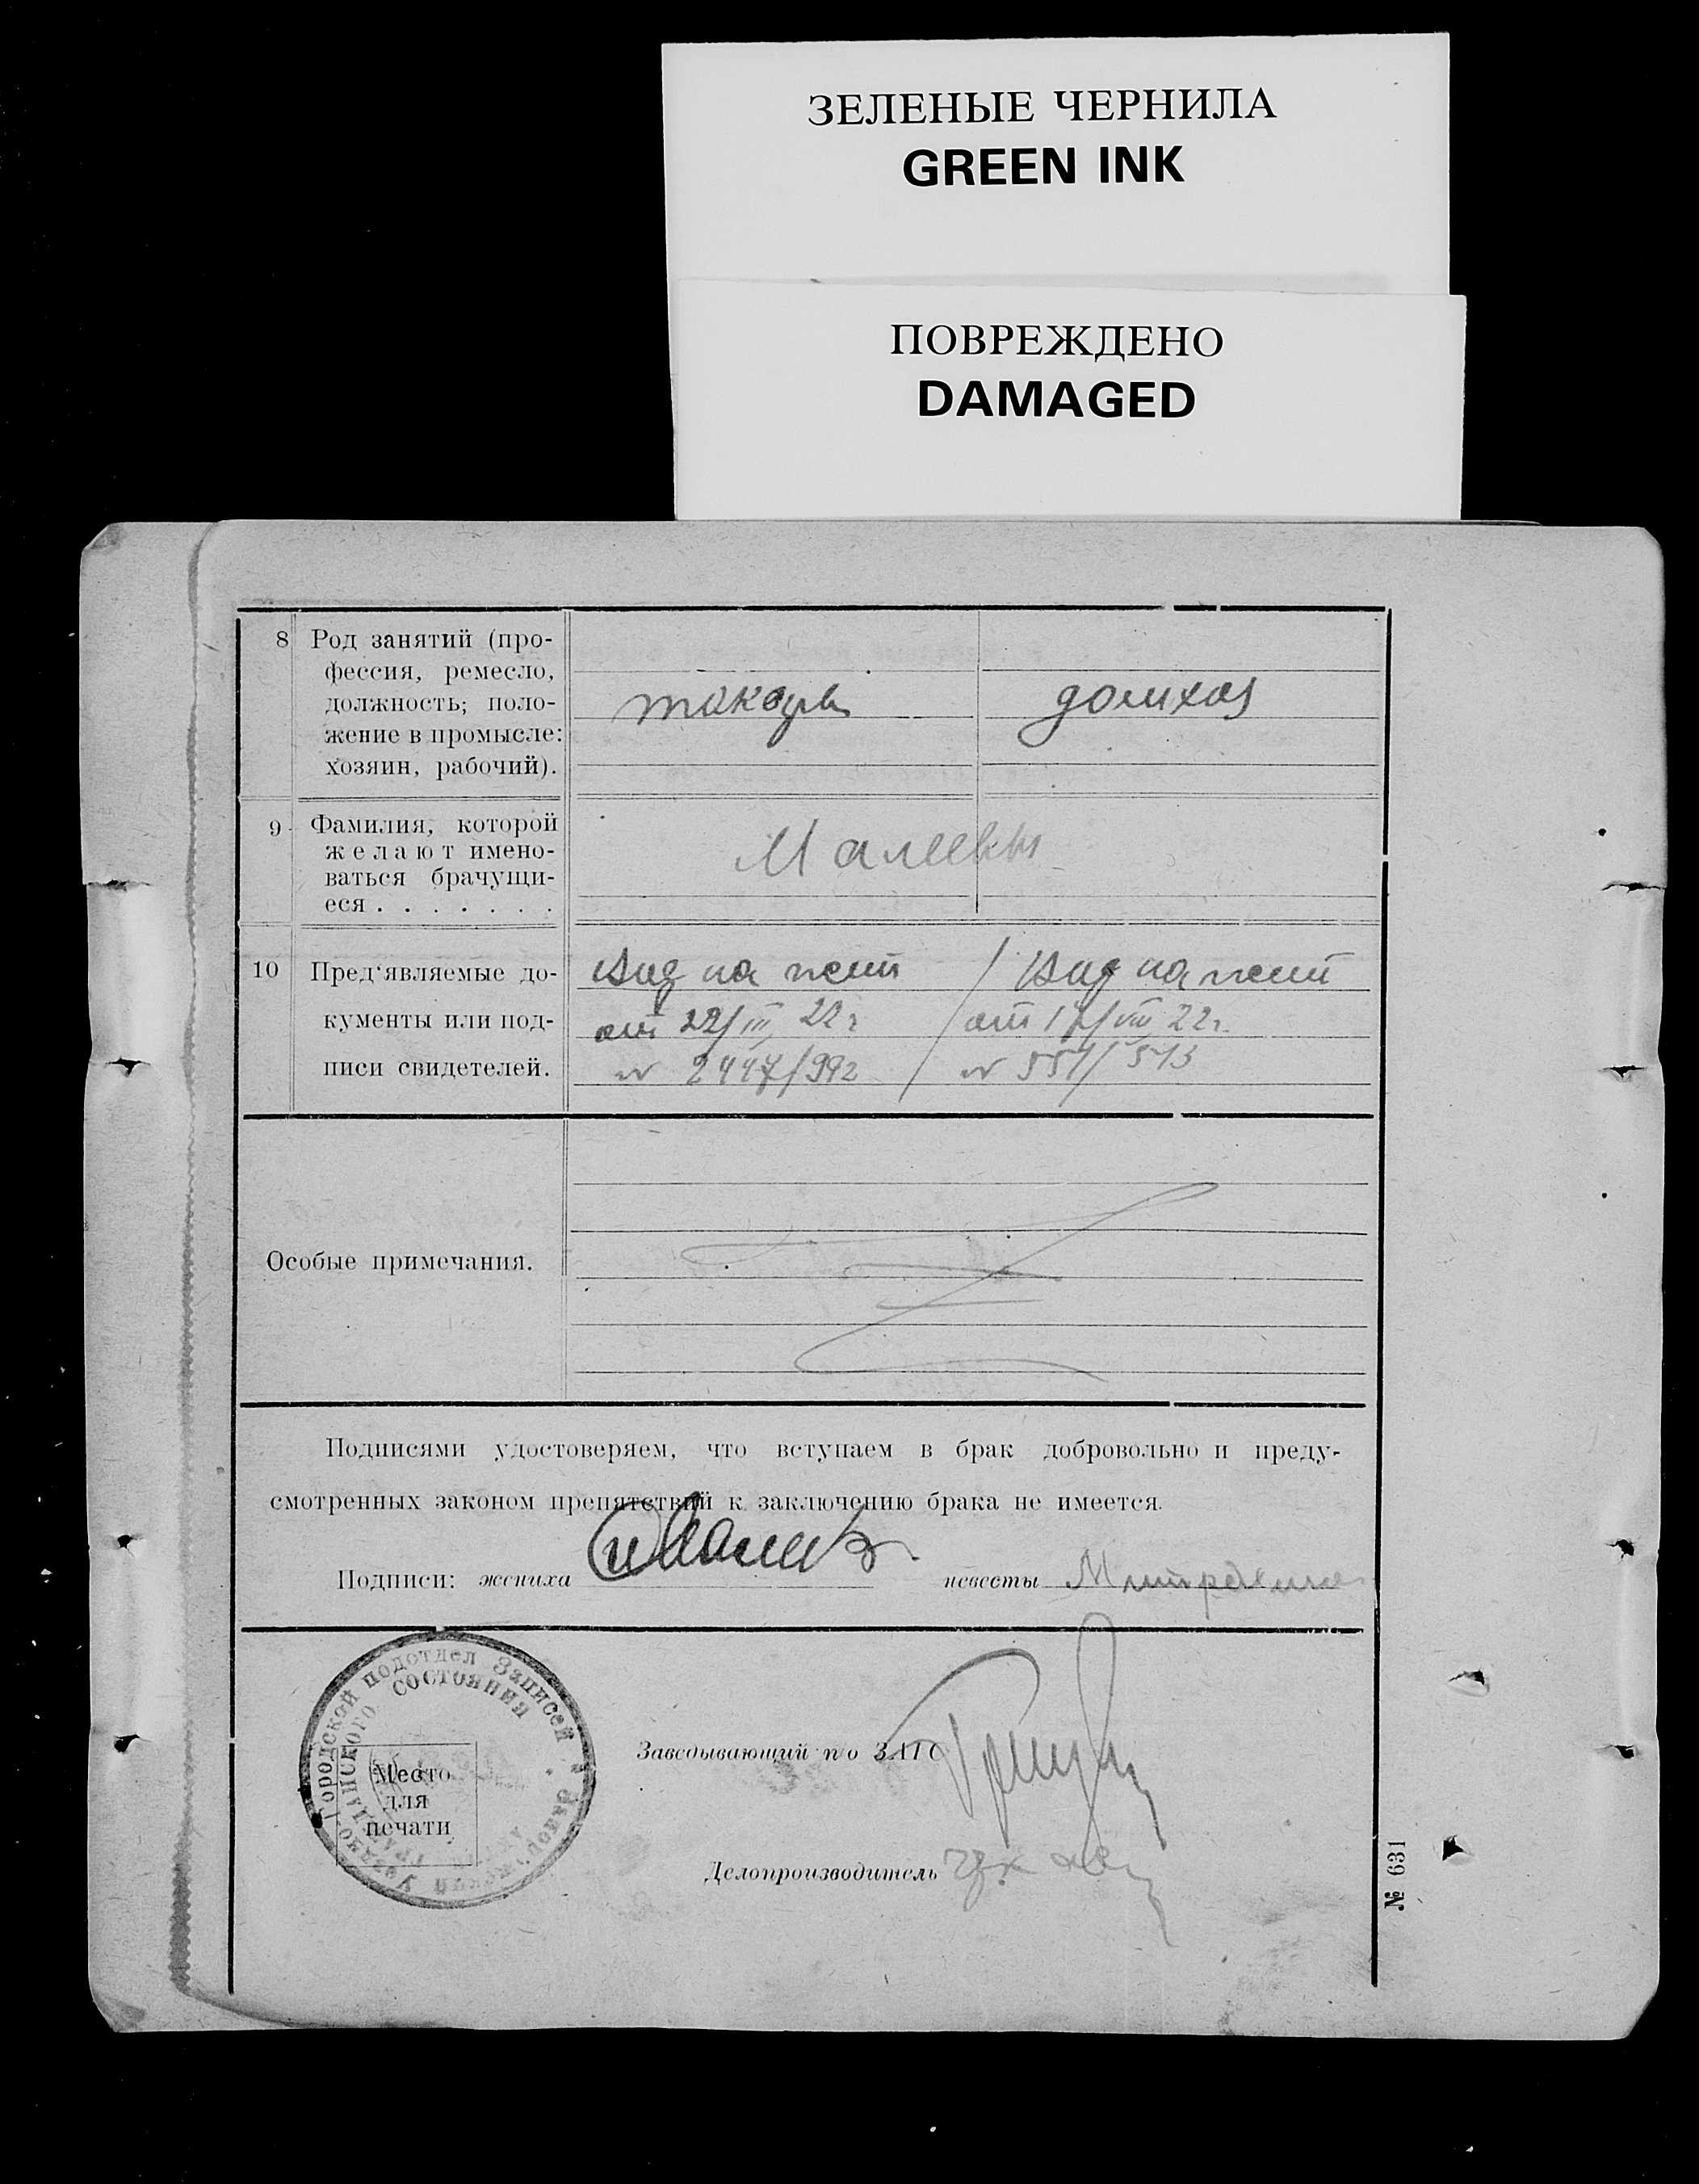 ЗЕЛЕНЫЕ ЧЕРНИЛА
GREEN INK
ПОВРЕЖДЕНО
DAMAGED
8 Род занятий (про-
фессия, ремесло,
должность; поло-
жение в промысле:
хозяин, рабочий).
токарь домхоз
9 Фамилия, которой
желают имено-
ваться брачущи-
еся . . . . . . .
Малеевы
10 Пред'являемые до-
кументы или под-
писи свидетелей.
Вид на жит / Вид на жит
от 22/III 22 г / от 17/VIII 22 г.
№ 2447/992 / № 551/513
Особые примечания.
Подписями удостоверяем, что вступаем в брак добровольно и преду-
смотренных законом препятствий к заключению брака не имеется.
Подписи: жениха невесты
Городской подотдел Записей
гражданского состояния
Место
для
печати
Заведывающий п/о ЗАГС
Делопроизводитель
№ 631